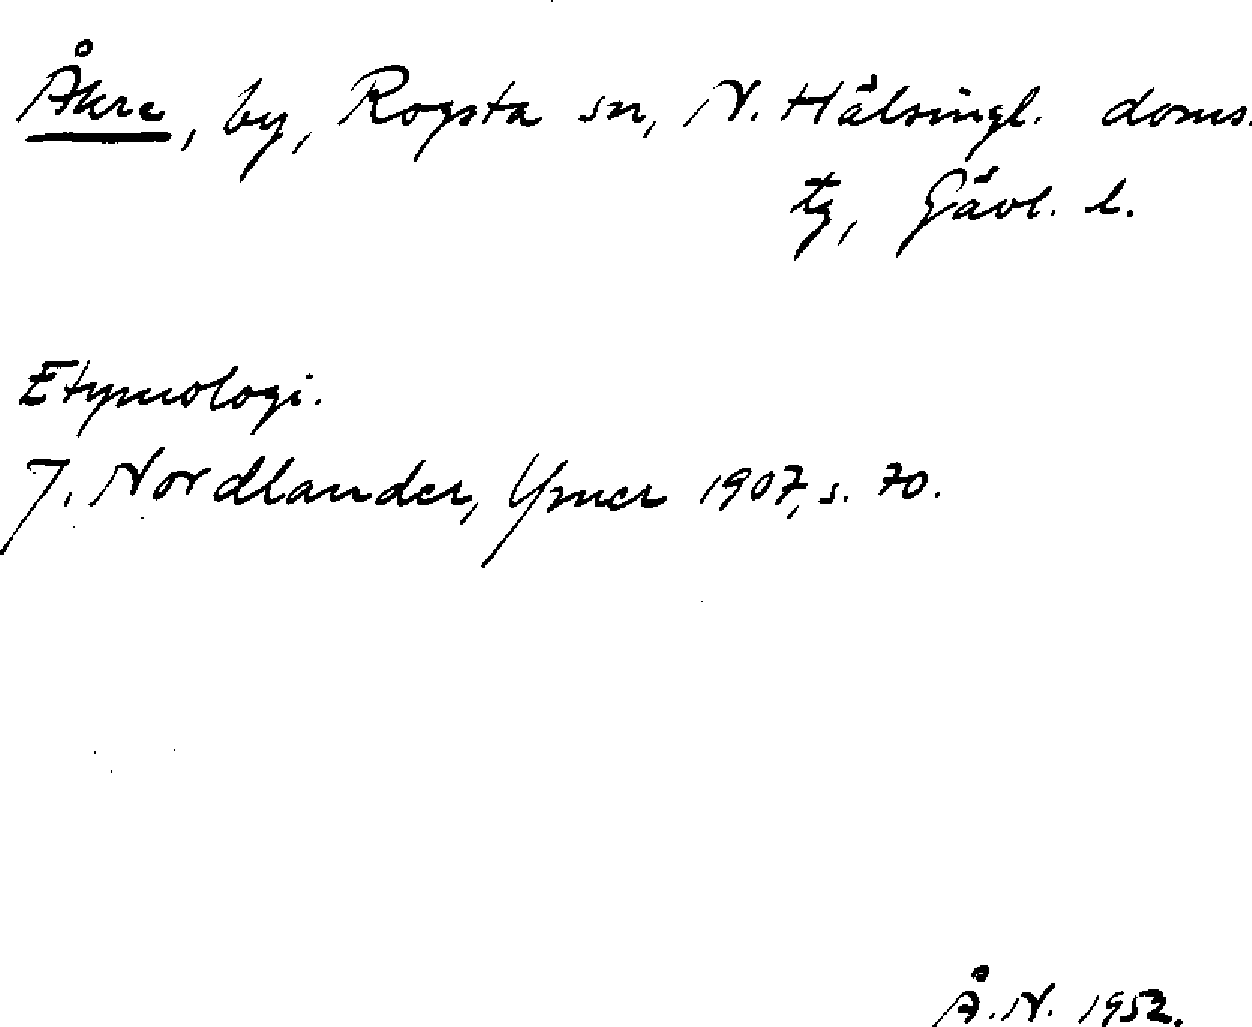 Åkre, by, Rogsta sn, N. Hälsingl. doms.
tg, Gävl. l.
Etymologi.
J. Nordlander, Ymer 1907, s. 70.
Å.N. 1952.